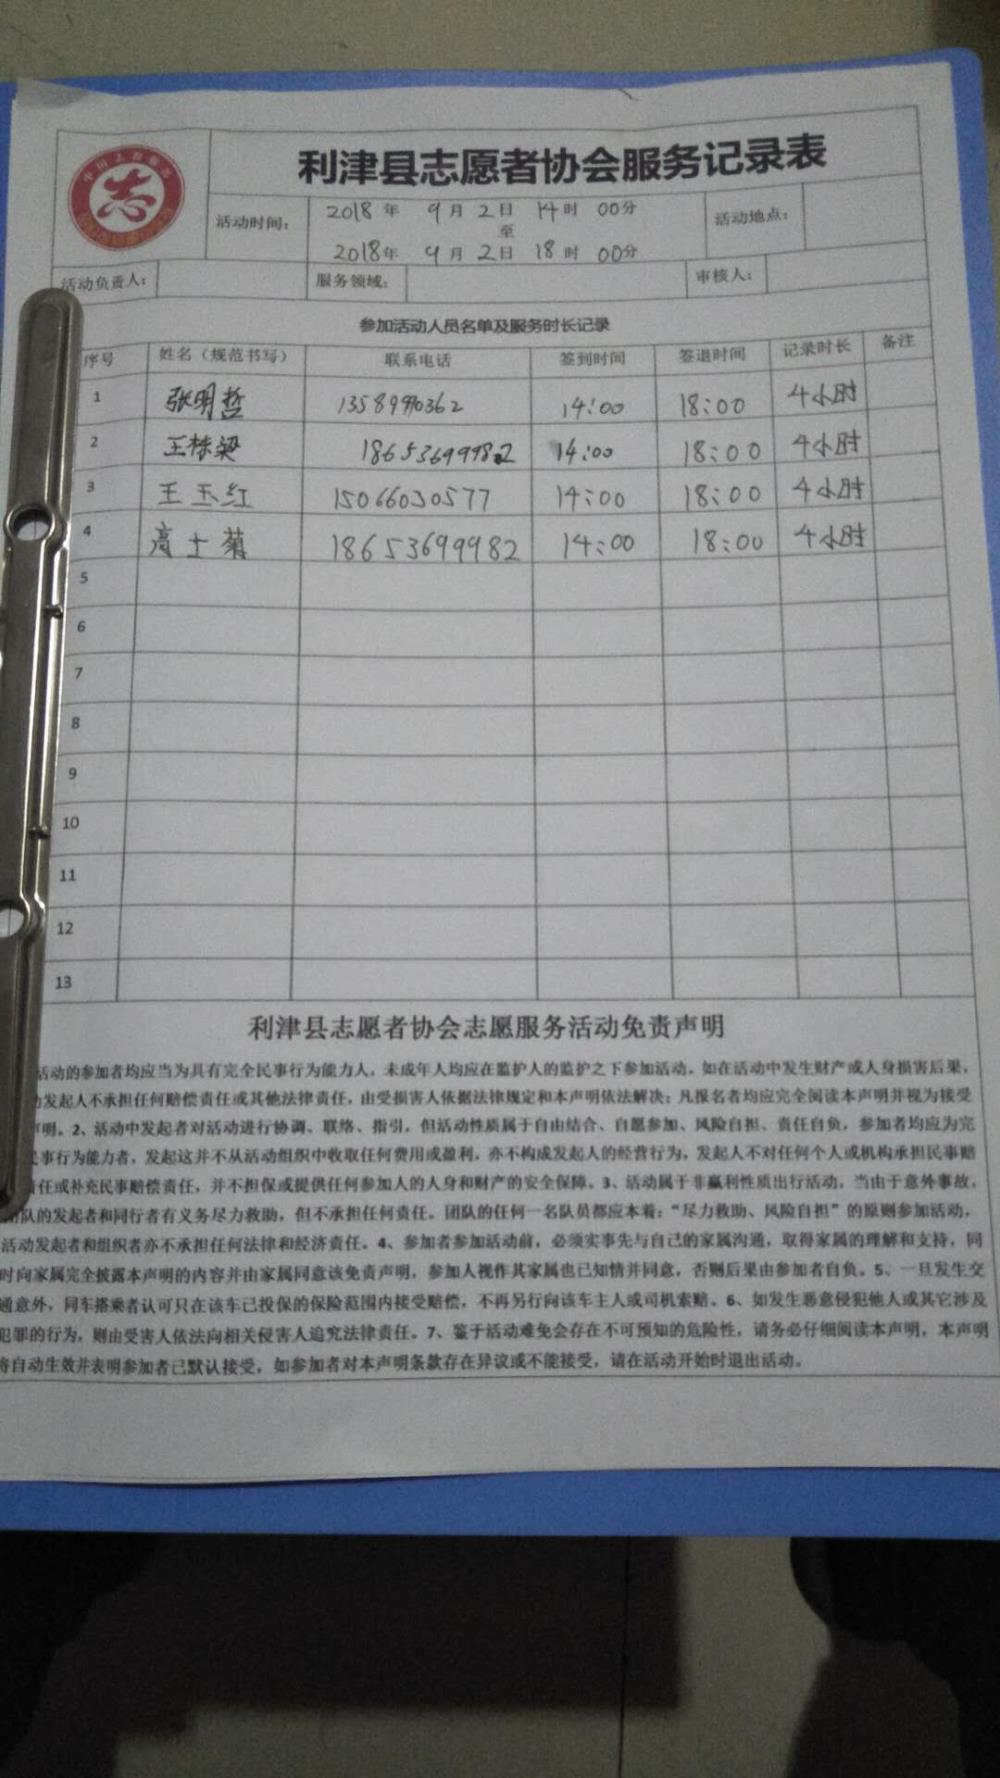 中国志愿服务
志
利津县志愿者协会服务记录表
活动时间： 2018年 9月 2日 14时 00分 活动地点：
至
2018年 9月 2日 18时 00分
活动负责人： 服务领域： 审核人：
参加活动人员名单及服务时长记录
序号 姓名（规范书写） 联系电话 签到时间 签退时间 记录时长 备注
1 张明哲 14:00 18:00 4小时
2 王栋梁 18653699982 14:00 18:00 4小时
3 王玉红 15066030577 14:00 18:00 4小时
4 高士菊 18653699982 14:00 18:00 4小时
5
6
7
8
9
10
11
12
13
利津县志愿者协会志愿服务活动免责声明
活动的参加者均应当为具有完全民事行为能力人，未成年人均应在监护人的监护之下参加活动。如在活动中发生财产或人身损害后果，
发起人不承担任何赔偿责任或其他法律责任，由受损害人依据法律规定和本声明依法解决；凡报名者均应完全阅读本声明并视为接受
声明。2、活动中发起者对活动进行协调、联络、指引，但活动性质属于自由结合、自愿参加、风险自担、责任自负，参加者均应为完
民事行为能力者，发起这并不从活动组织中收取任何费用或盈利，亦不构成发起人的经营行为，发起人不对任何个人或机构承担民事赔
责任或补充民事赔偿责任，并不担保或提供任何参加人的人身和财产的安全保障。3、活动属于非赢利性质出行活动，当由于意外事故，
团队的发起者和同行者有义务尽力救助，但不承担任何责任。团队的任何一名队员都应本着：“尽力救助、风险自担”的原则参加活动，
活动发起者和组织者亦不承担任何法律和经济责任。4、参加者参加活动前，必须实事先与自己的家属沟通，取得家属的理解和支持，同
时向家属完全披露本声明的内容并由家属同意该免责声明，参加人视作其家属也已知情并同意，否则后果由参加者自负。5、一旦发生交
通意外，同车搭乘者认可只在该车已投保的保险范围内接受赔偿，不再另行向该车主人或司机索赔。6、如发生恶意侵犯他人或其它涉及
犯罪的行为，则由受害人依法向相关侵害人追究法律责任。7、鉴于活动难免会存在不可预知的危险性，请务必仔细阅读本声明，本声明
将自动生效并表明参加者已默认接受，如参加者对本声明条款存在异议或不能接受，请在活动开始时退出活动。